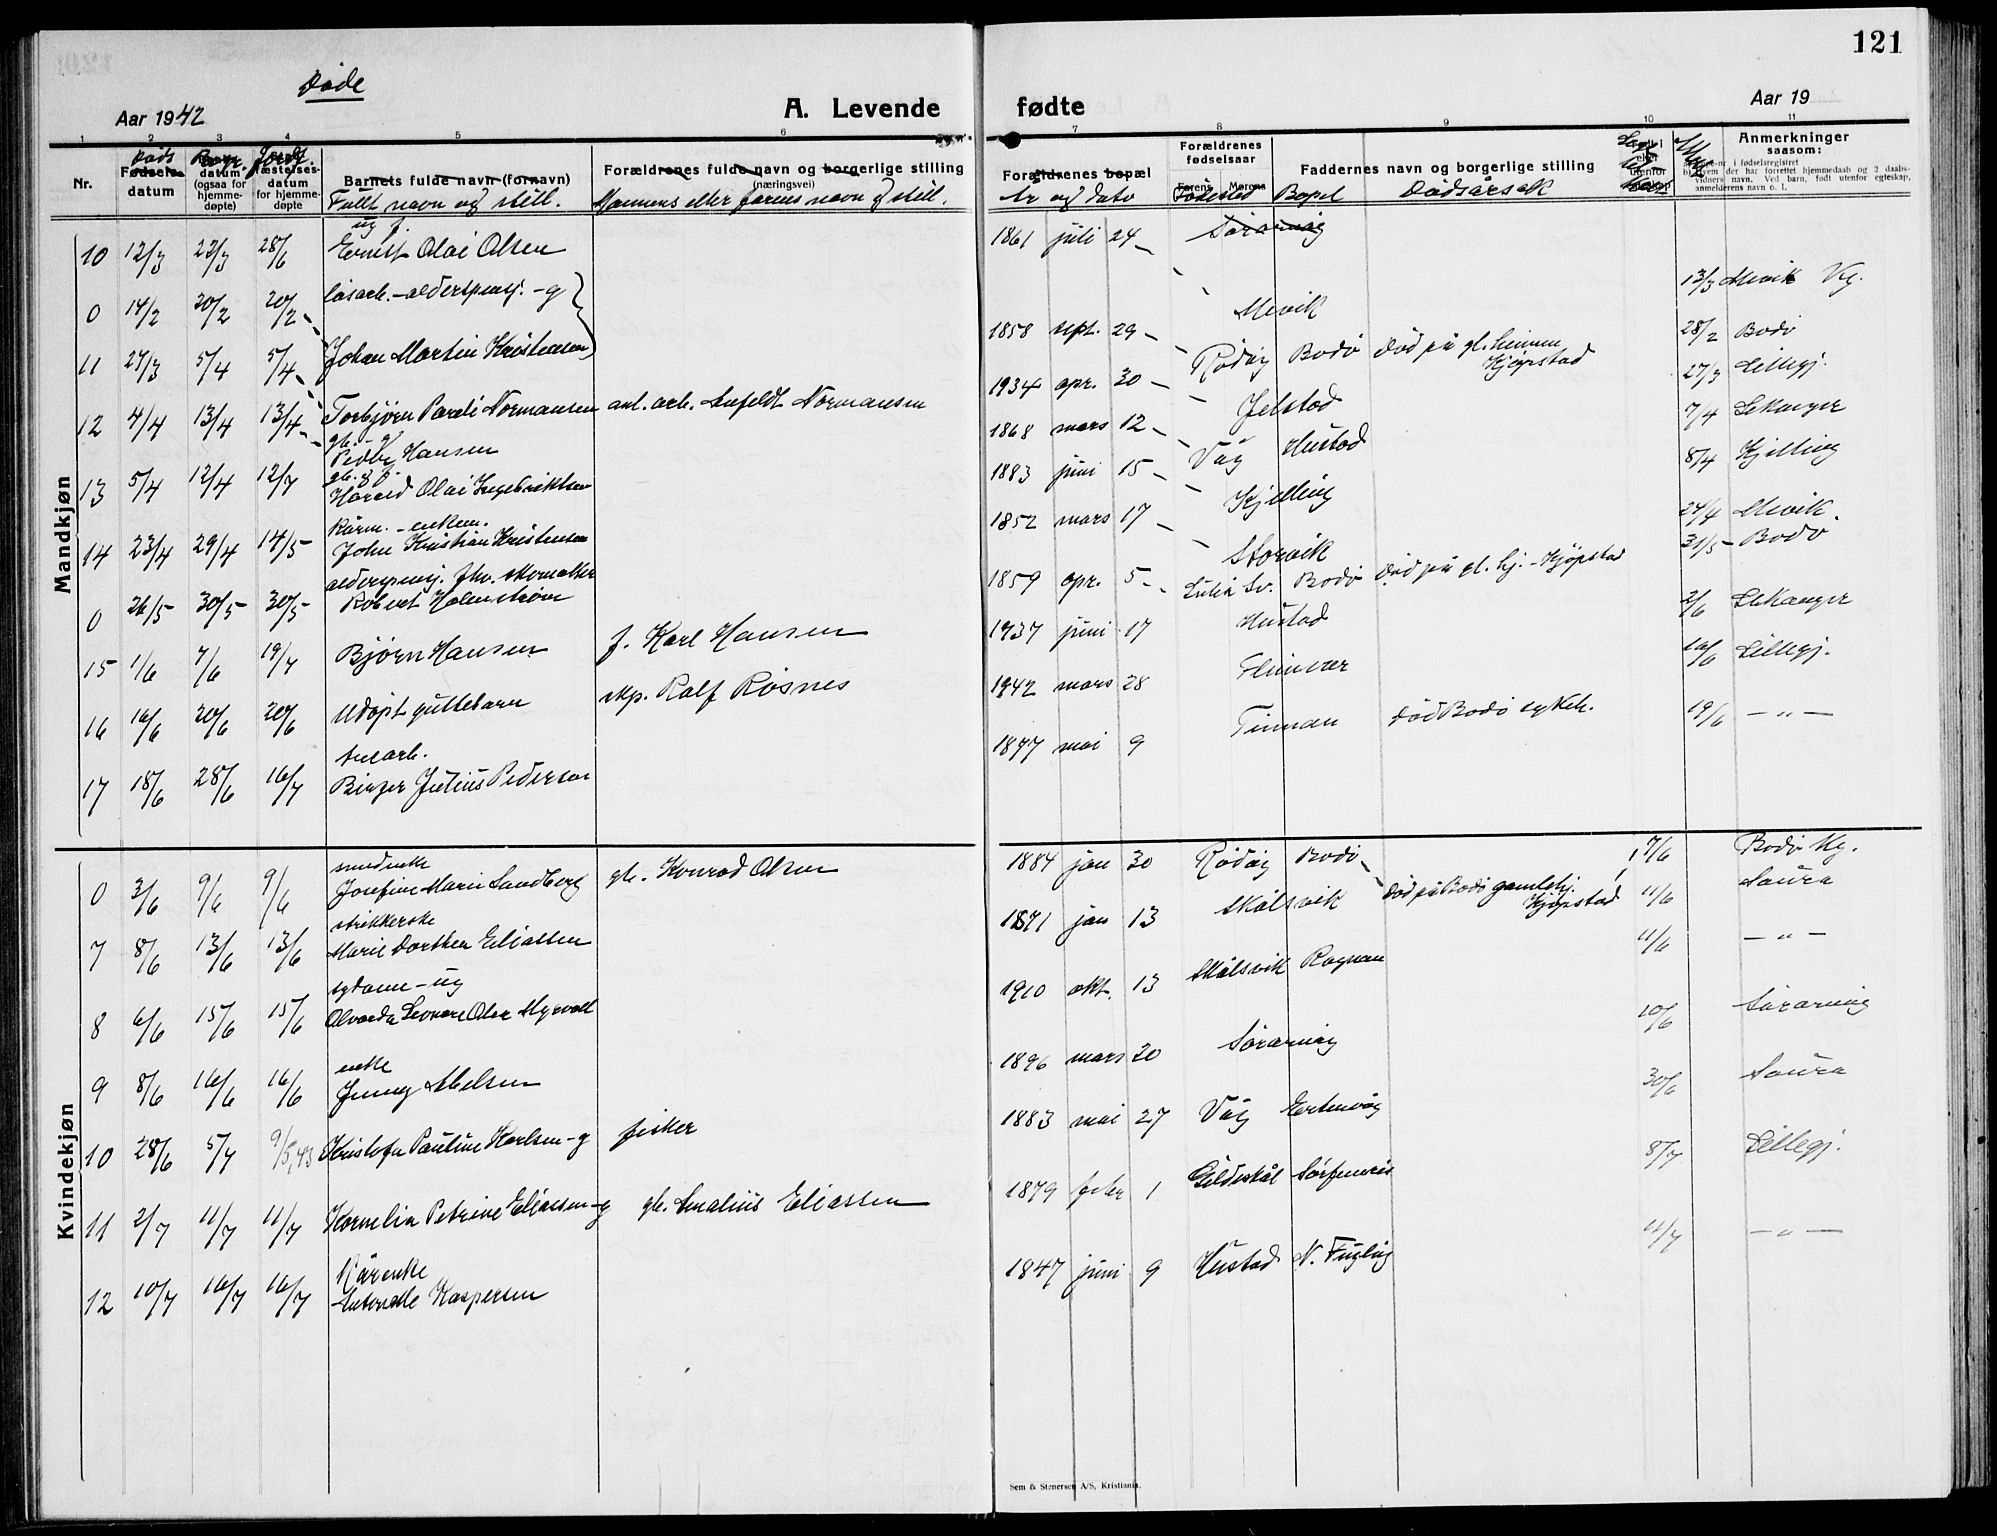 121
Døde
Aar 1942
A. Levende
fødte
Aar 19
1 2 3 4 5 6 7 8 9 10 11
Nr.
Døds
Fødsels-
datum
datum
(ogsaa for
hjemme-
døpte)
Jordf.
fæstelses-
datum
for hjemme-
døpte
Barnets fulde navn (fornavn)
Fullt navn og still.
Forældrenes fulde navn og borgerlige stilling
(næringsvei)
Mannens eller farens navn og still.
Forældrenes bopæl
år og dato
Forældrenes
fødselsaar
Farens Morens
Fødested
Bopel
Faddernes navn og borgerlige stilling
Dødsårsak
Anmerkninger
saasom:
Mandkjøn
10 12/3 23/3 28/6 ug f. Ernst Olai Olsen 1861 juli 24 Sørarnøy 13/3 Mevik Kg.
0 14/2 20/2 20/2 løsarb. - alderspensj. - g Johan Martin Kristensen 1858 sept. 29 Mevik 28/2 Bodø
11 27/3 5/4 5/4 Torbjørn Pareli Normansen anl. arb. Anfeldt Normansen 1934 apr. 30 Rødøy Bodø Død på gl. heimen Kjøpstad 27/3 Lillegj.
12 4/4 13/4 13/4 gb. - g Peder Hansen 1868 mars 12 Jelstad 7/4 Lekanger
13 5/4 12/4 12/7 gb. g f. Harald Olai Ingebriktsen 1883 juni 15 Våg Hustad 8/4 Kjelling
14 23/4 29/4 14/5 kårm. - enkem. John Kristian Kristensen 1852 mars 17 Kjelling 24/4 Mevik.
0 26/5 30/5 30/5 alderspensj. fhv. skomaker Robert Holmstrøm 1859 apr. 5 Storvik Luleå Sv. Bodø Død på gl. hj. - Kjøpstad 31/5 Bodø
15 1/6 7/6 19/7 Bjørn Hansen f. Karl Hansen 1937 juni 17 Hustad 2/6 Lekanger
16 16/6 20/6 20/6 Udøpt guttebarn skp. Ralf Røsnes 1942 mars 28 Fleinvær 16/6 Lillegj.
17 18/6 28/6 16/7 Birger Julius Pedersen 1897 mai 9 Finnan død Bodø sykeh. 19/6 — " —
Kvindekjøn
0 3/6 9/6 9/6 Josefine Marie Sandberg gb. Konrad Olsen 1884 jan 30 Rødøy Bodø 7/6 Bodø Kg.
7 8/6 13/6 13/6 strikkerske Marie Dorthea Eliassen 1871 jan 13 Skålsvik død på Bodø gamlehj. Kjøpstad 11/6 Saura
8 6/6 15/6 15/6 sydame - ug Alvarda Leonore Olsen Myrvoll 1910 okt. 13 Skålsvik Rognan 11/6 — " —
9 8/6 16/6 16/6 enke Jenny Abelsen 1896 mars 20 Sørarnøy 10/6 Sørarnøy
10 28/6 5/7 9/5,43 Kristofa Pauline Karlsen - g fisker 1883 mai 27 Våg Ertenvåg 30/6 Saura
11 2/7 11/7 11/7 Kornelia Petrine Eliassen - g gb. Amalius Eliassen 1879 febr 1 Gildeskål Sørfinnvis 8/7 Lillegj.
12 10/7 16/7 16/7 Kårenke Antonette Kaspersen 1847 juni 9 Hustad N. Fugløy 11/7 — " —
Sem & Stenersen A/S, Kristiania.